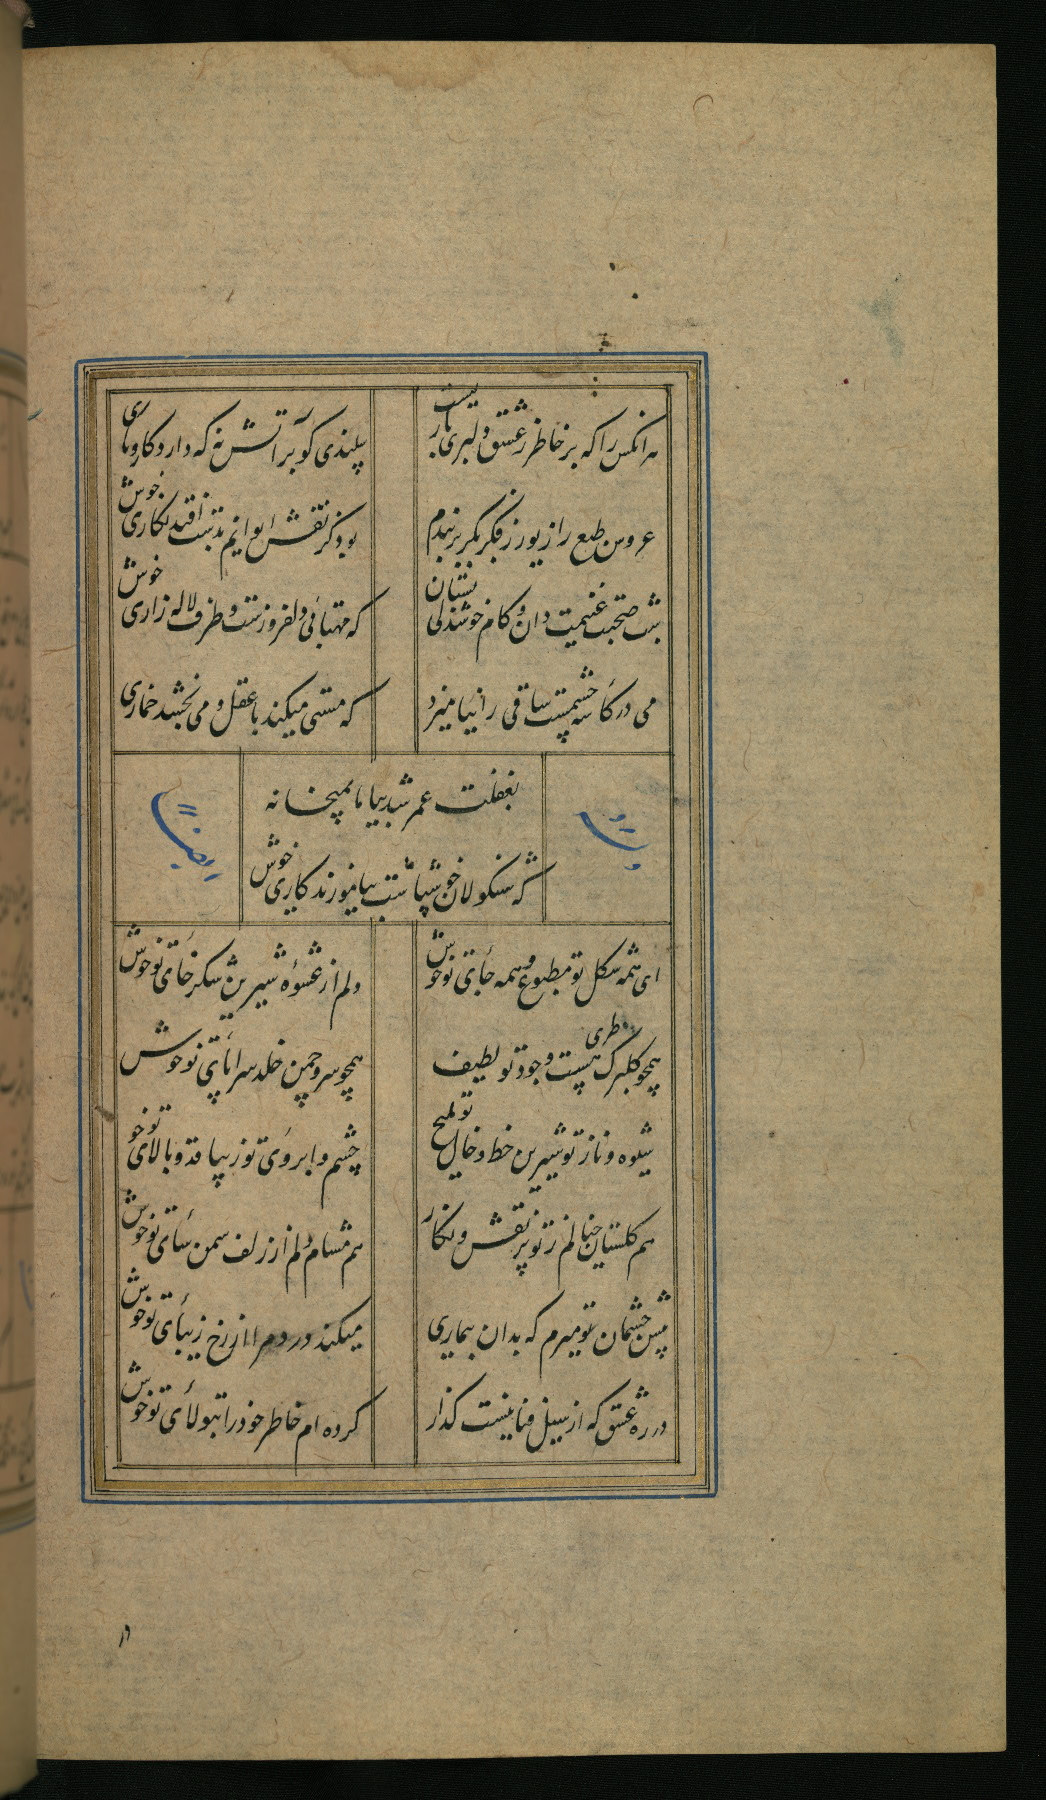 هر آنکس را که بر خاطر ز عشق دلبری باریست
سپندی گو بر آتش نه که دارد کار و باری
عروس طبع را زیور ز فکر بکر میبندم
بود کز نقش ایوانم بدست افتد نکاری خوش
شب صحبت غنیمت دان و کام خوشدلی بستان
که مهتابی دلفروزست و طرف لاله زاری خوش
می در کاسه چشمست ساقی را
که مستی میکند با عقل و می بخشد خماری
بغفلت عمر شد بیا با ما بمیخانه
که شنکولان خوشباشت بیاموزند کاری خوش
وله
ایضا
ای همه شکل تو مطبوع و همه جای تو خوش
دلم از عشوه شیرین شکر خای تو خوش
همچو کلبرک طری هست وجود تو لطیف
همچو سرو چمن خلد سراپای تو خوش
شیوه و ناز تو شیرین خط و خال تو ملیح
چشم و ابروی تو زیبا قد و بالای تو خو
هم کلستان خیالم ز تو پر نقش و نکار
هم مشام دلم از زلف سمن سای تو خوش
پیش چشمان تو میرم که بدان بیماری
میکند درد مرا از رخ زیبای تو خوش
در ره عشق که از سیل فنا نیست کذار
کرده ام خاطر خود را بتولای تو خوش